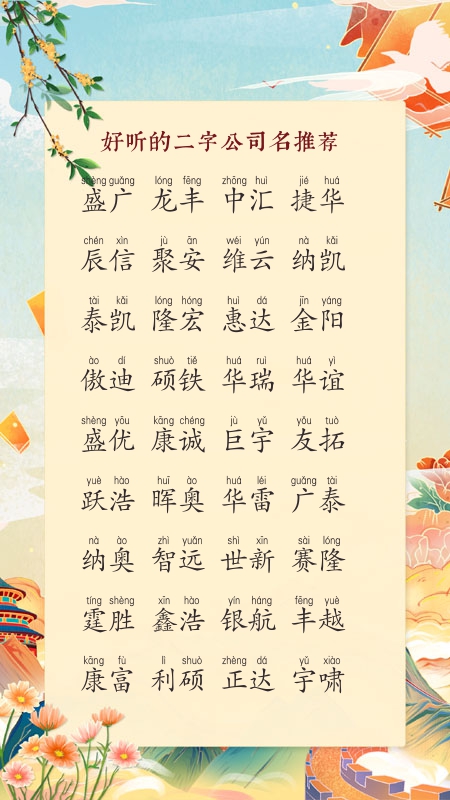 好听的二字公司名推荐
shèng guǎng lóng fēng zhōng huì jié huá
盛广 龙丰 中汇 捷华
chén xìn jù ān wéi yún nà kǎi
辰信 聚安 维云 纳凯
tài kǎi lóng hóng huì dá jīn yáng
泰凯 隆宏 惠达 金阳
ào dí shuò tiě huá ruì huá yì
傲迪 硕铁 华瑞 华谊
shèng yōu kāng chéng jù yǔ yǒu tuò
盛优 康诚 巨宇 友拓
yuè hào huī ào huá léi guǎng tài
跃浩 晖奥 华雷 广泰
nà ào zhì yuǎn shì xīn sài lóng
纳奥 智远 世新 赛隆
tíng shèng xīn hào yín háng fēng yuè
霆胜 鑫浩 银航 丰越
kāng fù lì shuò zhèng dá yǔ xiào
康富 利硕 正达 宇啸